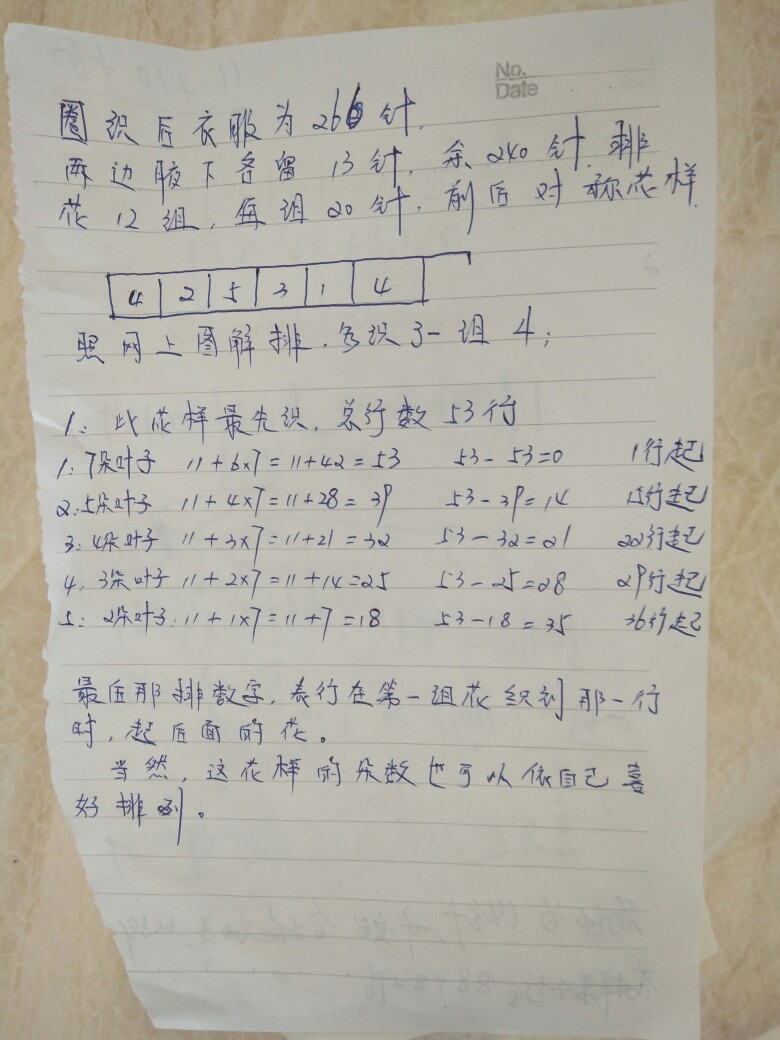 No.
Date
圈织后衣服为266针.
两边腋下各留13针.余240针.排
花12组.每组20针.前后对称花样.
4 2 5 3 1 4
照网上图解排.多织3-组4;
1:此花样最先织.总行数53行
1:7朵叶子 11+6×7=11+42=53 53-53=0 1行起
2:5朵叶子 11+4×7=11+28=39 53-39=14 15行起
3:4朵叶子 11+3×7=11+21=32 53-32=21 22行起
4,3朵叶子 11+2×7=11+14=25 53-25=28 29行起
5:2朵叶子:11+1×7=11+7=18 53-18=35 36行起
最后那排数字,表行在第一组花织到那一行
时,起后面的花。
当然,这花样的朵数也可以依自己喜
好排列。